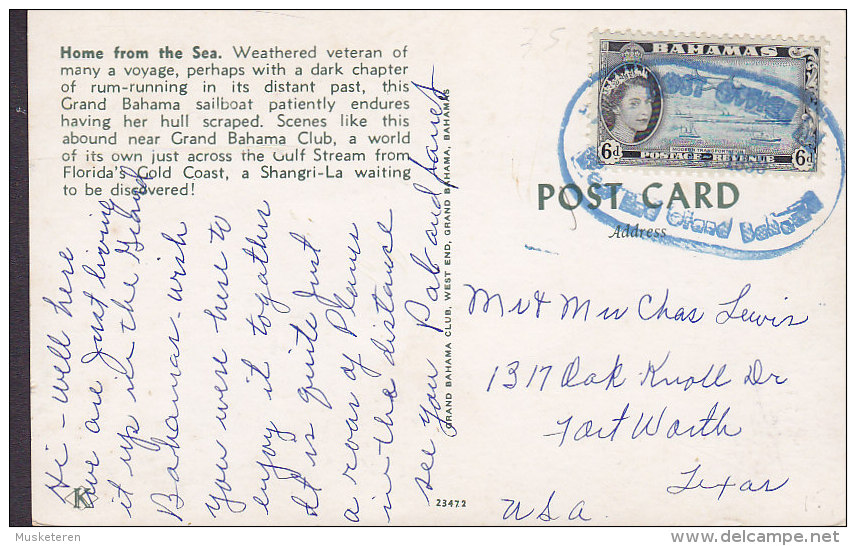 Home from the Sea. Weathered veteran of
many a voyage, perhaps with a dark chapter
of rum-running in its distant past, this
Grand Bahama sailboat patiently endures
having her hull scraped. Scenes like this
abound near Grand Bahama Club, a world
of its own just across the Gulf Stream from
Florida's Gold Coast, a Shangri-La waiting
to be discovered!
Hi - well here
we are just living
it up in the Grand
Bahamas - wish
you were here to
enjoy it together
It is quite just
a roar of Planes
in the distance
see you Pat and Janet
K
GRAND BAHAMA CLUB, WEST END, GRAND BAHAMA, BAHAMAS
23472
75
BAHAMAS
MODERN TRANSPORTATION
6d POSTAGE AND REVENUE 6d
POST OFFICE
West End Grand Bahama
POST CARD
Address
Mr & Mrs Chas Lewis
1317 Oak Knoll Dr
Fort Worth
Texas
U.S.A.
Musketeren
delcampe.net